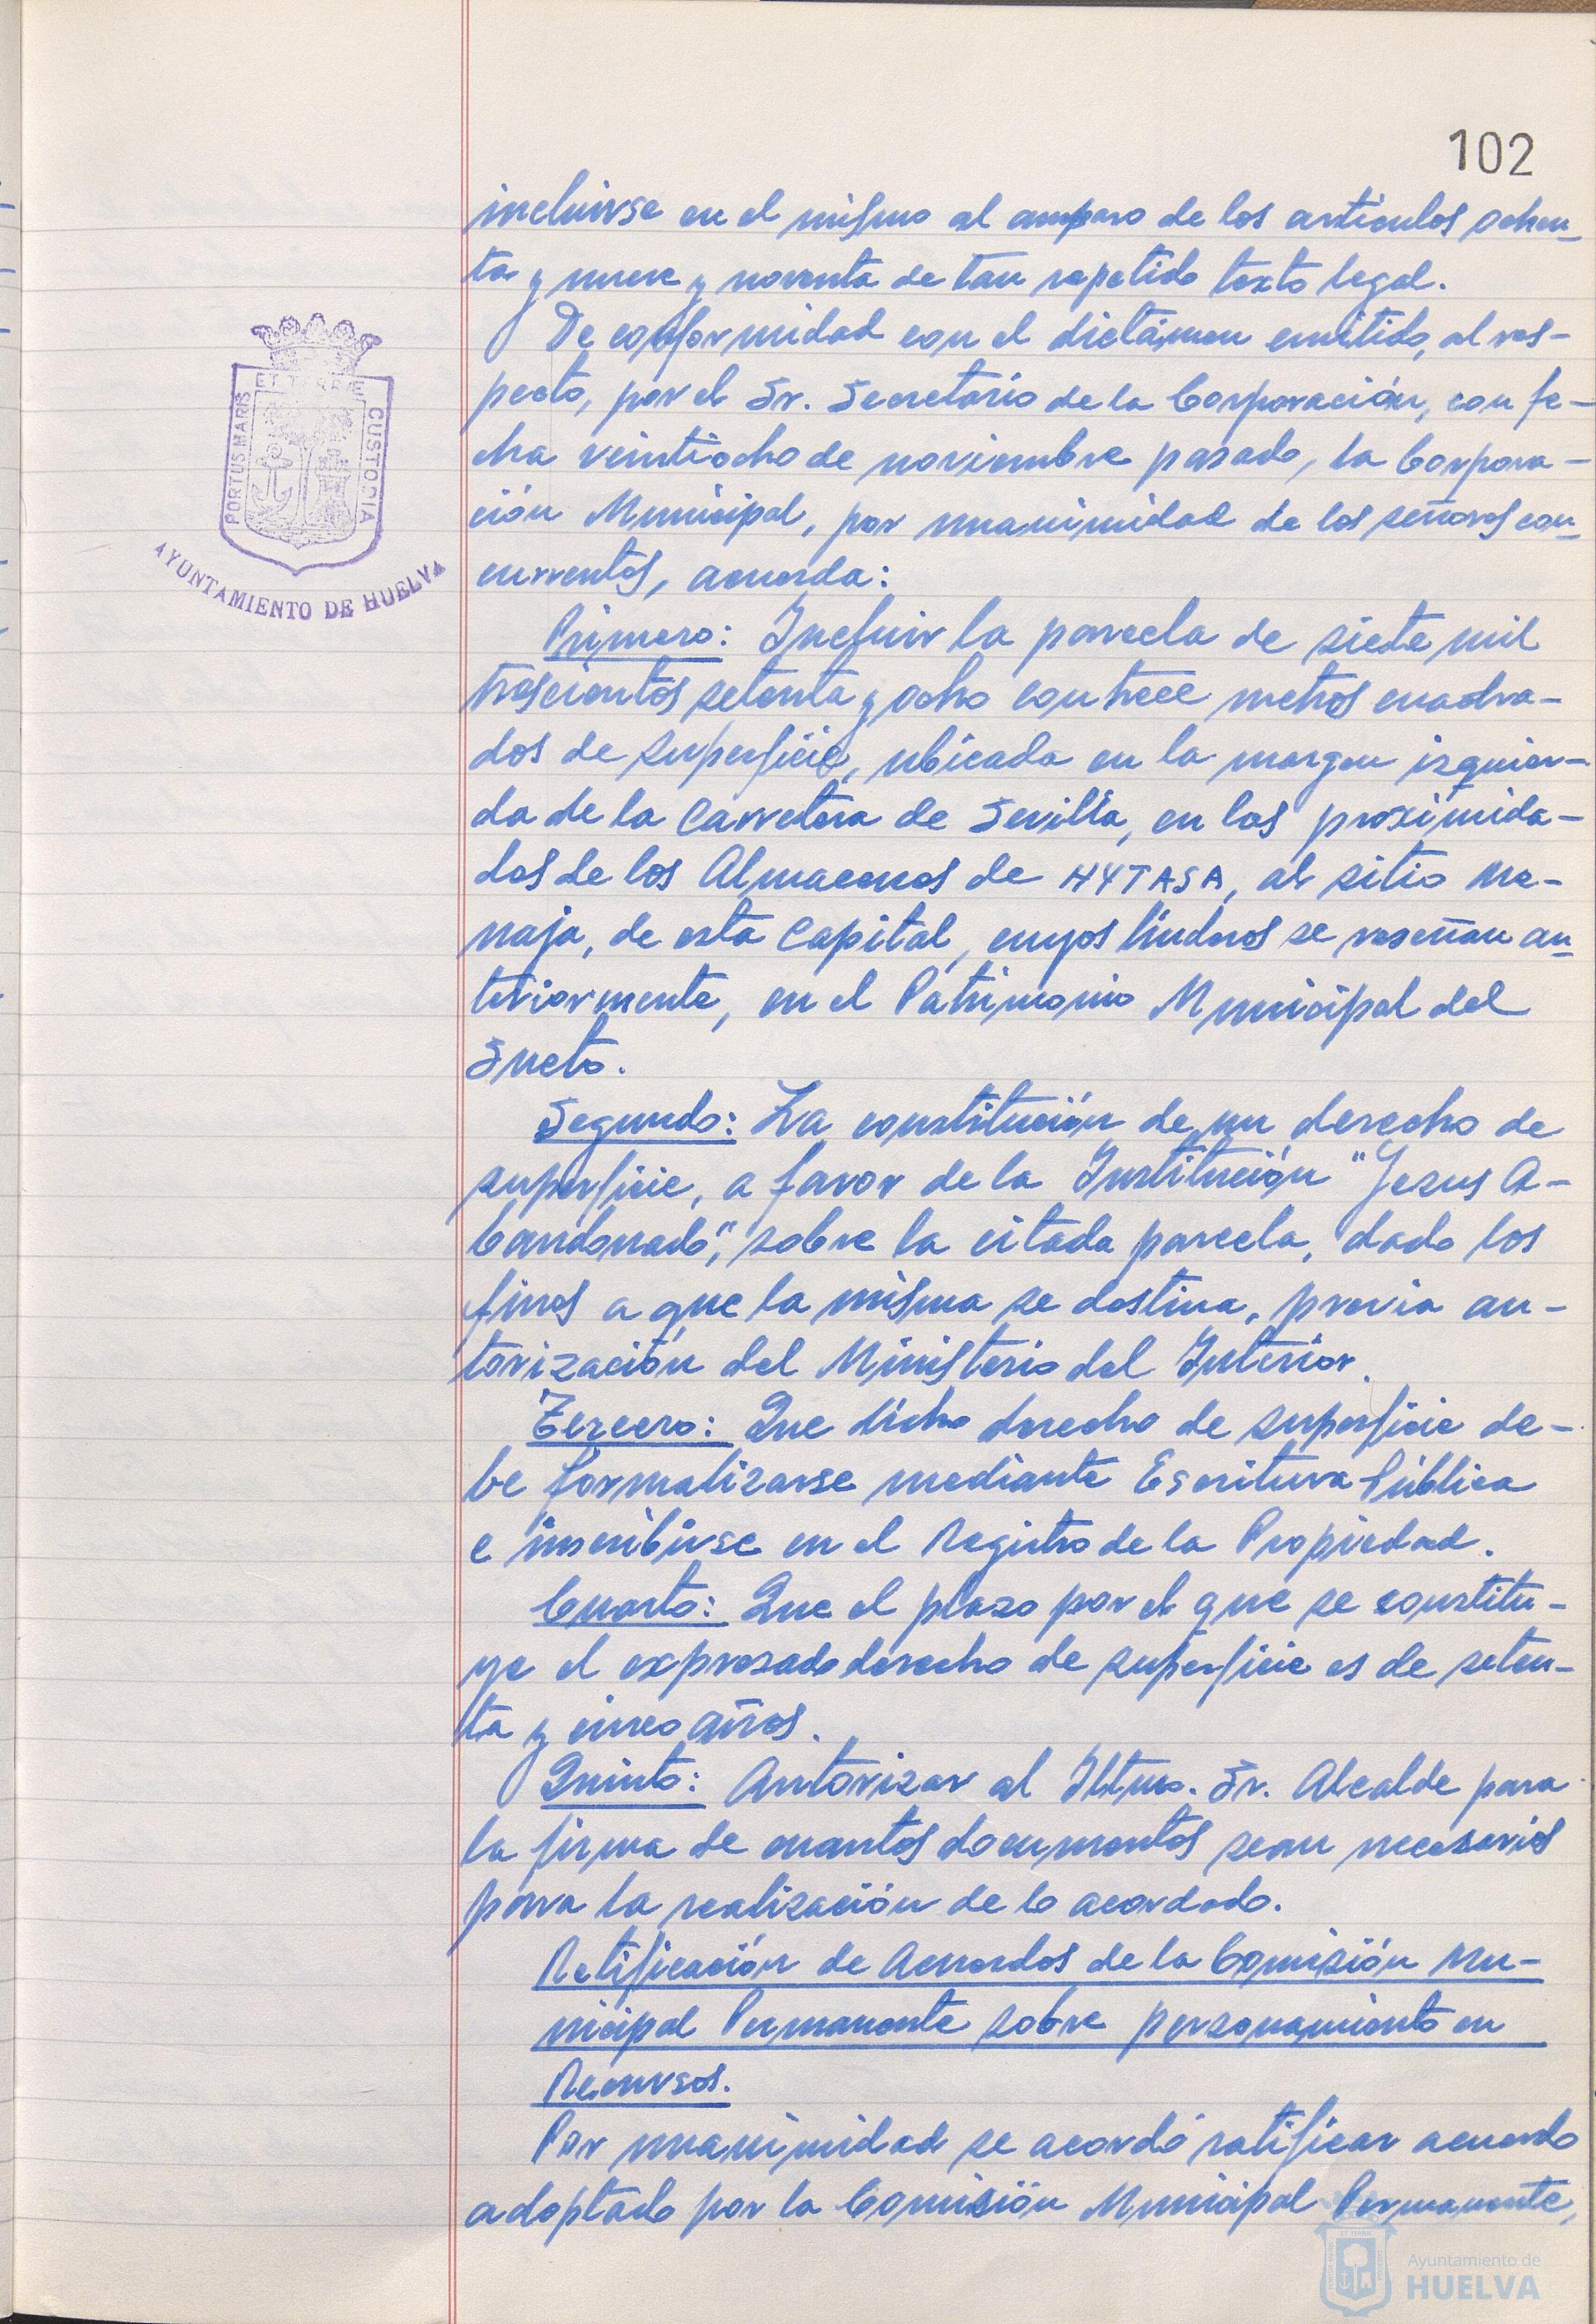 102
incluirse en el mismo al amparo de los artículos ochen-
ta y nueve y noventa de tan repetido texto legal.
De conformidad con el dictámen emitido, al res-
pecto, por el Sr. Secretario de la Corporación, con fe-
cha veintiocho de noviembre pasado, la Corpora-
ción Municipal, por unanimidad de los señores con-
currentes, acuerda:
Primero: Incluir la parcela de siete mil
trescientos setenta y ocho con trece metros cuadra-
dos de superficie, ubicada en la margen izquier-
da de la Carretera de Sevilla, en las proximida-
des de los Almacenes de HYTASA, al sitio Me-
naja, de esta Capital, cuyos linderos se reseñan an-
teriormente, en el Patrimonio Municipal del
Suelo.
Segundo: La constitución de un derecho de
superficie, a favor de la Institución "Jesus A-
bandonado", sobre la citada parcela, dado los
fines a que la misma se destina, previa au-
torización del Ministerio del Interior.
Tercero: Que dicho derecho de superficie de-
be formalizarse mediante Escritura Pública
e inscribirse en el Registro de la Propiedad.
Cuarto: Que el plazo por el que se constitu-
ye el expresado derecho de superficie es de seten-
ta y cinco años.
Quinto: Autorizar al Iltmo. Sr. Alcalde para
la firma de cuantos documentos sean necesarios
para la realización de lo acordado.
Ratificación de Acuerdos de la Comisión Mu-
nicipal Permanente sobre personamiento en
Recursos.
Por unanimidad se acordó ratificar acuerdo
adoptado por la Comisión Municipal Permanente,
PORTUS MARIS
ET TERRAE
CUSTODIA
AYUNTAMIENTO DE HUELVA
Ayuntamiento de
HUELVA